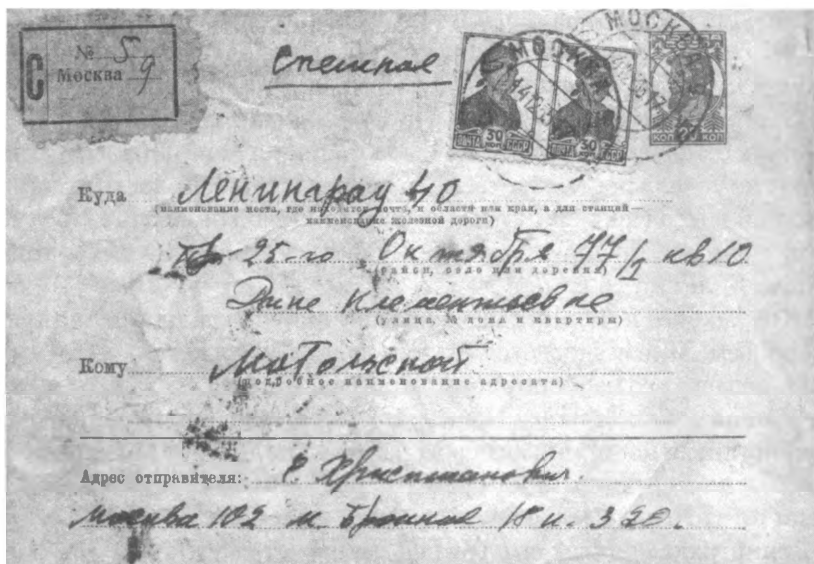 С № 59
Москва
Спешная
МОСКВА
МОСКВА
ПОЧТА 30 КОП СССР
ПОЧТА 30 КОП СССР
20 КОП
Куда Ленинград 40
(наименование места, где находится почта, и области или края, а для станций —
наименование железной дороги)
пр 25-го Октября 77/1 кв 10
(район, село или деревня)
Дине Клементьевне
(улица, № дома и квартиры)
Кому Матольской
(подробное наименование адресата)
Адрес отправителя: Христианович.
Москва 102 М. Бронная 18 к. 320.